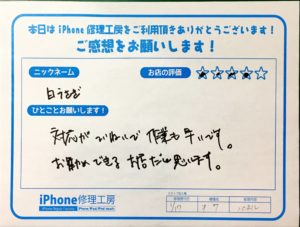 本日は iPhone 修理工房をご利用頂きありがとうございます!
ご感想をお願いします!
ニックネーム
お店の評価
白うさぎ
ひとことお願いします!
対応がていねいで作業も早いです。
お勧めできるお店だと思います。
iPhone修理工房